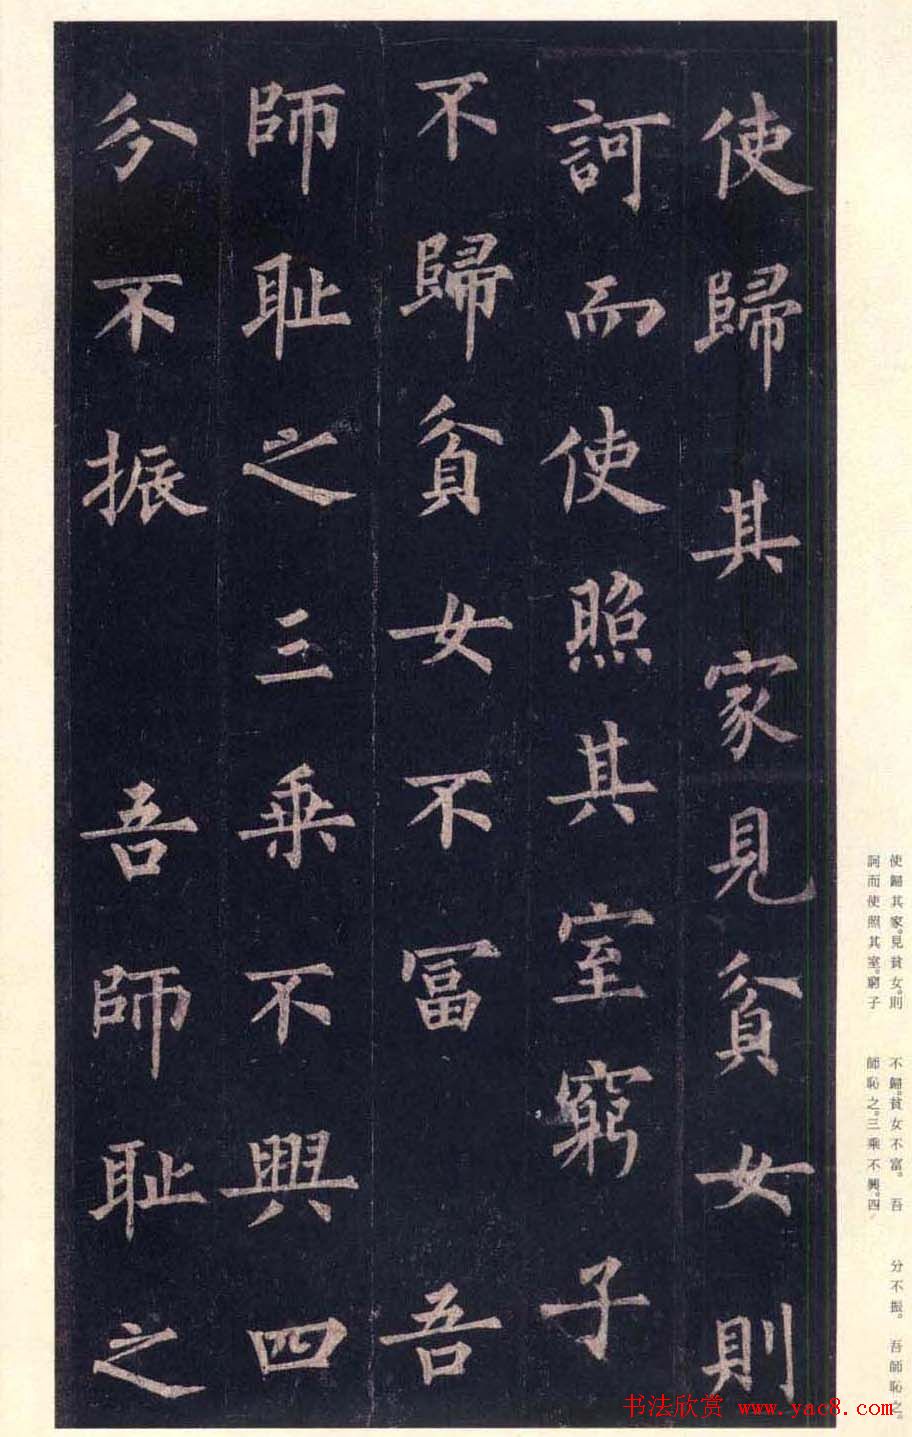 使歸其家見貧女則
訶而使照其室窮子
不歸貧女不冨 吾
師耻之三乘不興四
分不振 吾師耻之
使歸其家。見貧女。則
訶而使照其室。窮子
不歸。貧女不富。 吾
師恥之。三乘不興。四
分不振。 吾師恥之。
书法欣赏 www.yac8.com